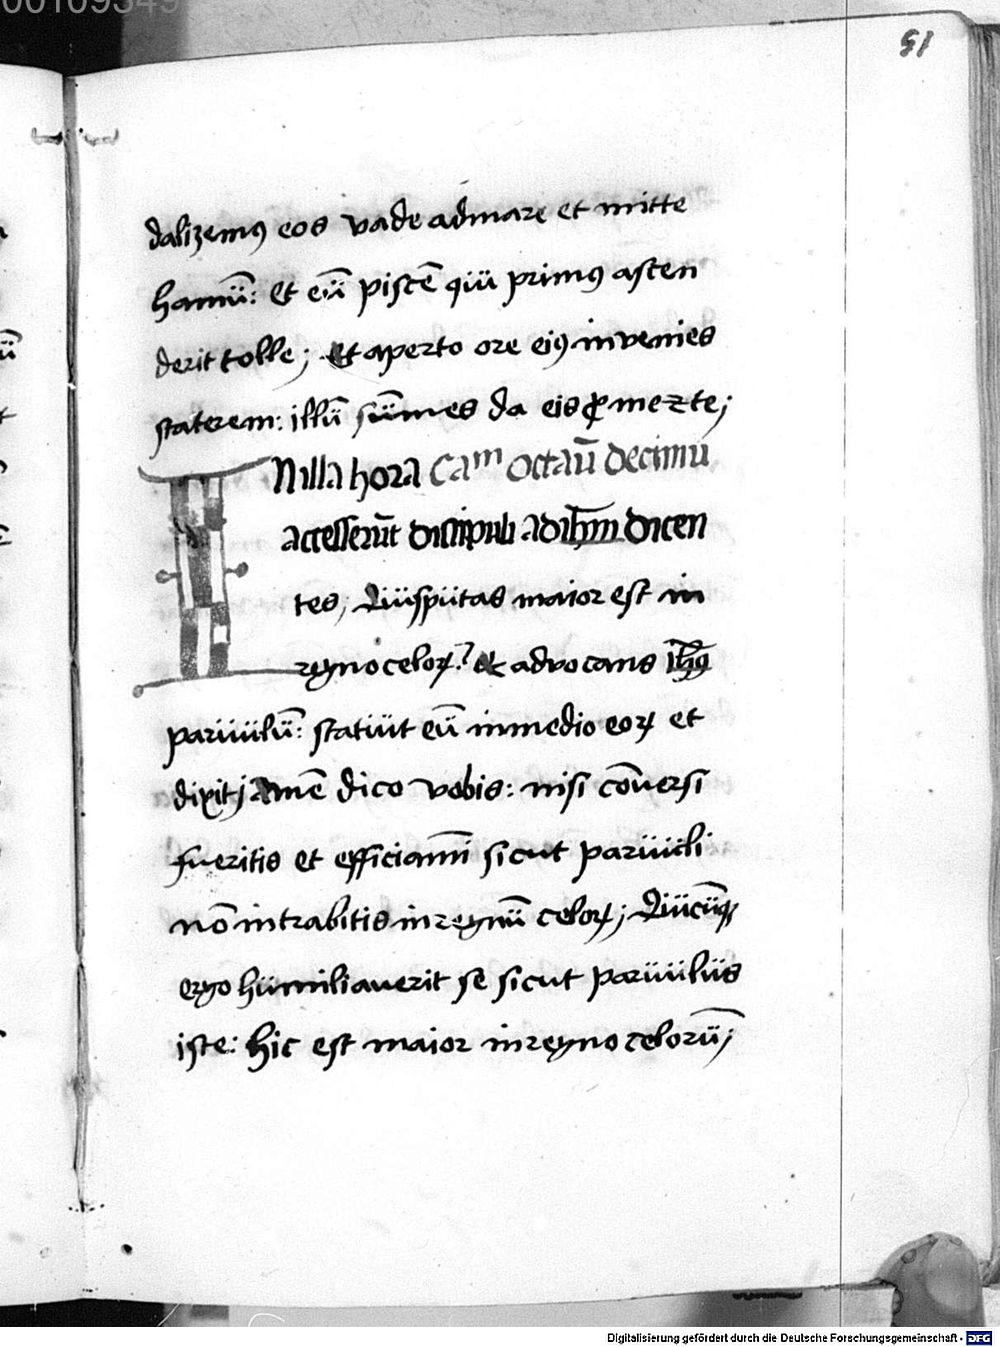 00109349
51
dalizemꝰ eos vade ad mare et mitte
hamū: et eū piscē qui primꝰ ascen
derit tolle; et aperto ore eiꝰ invenies
staterem: illū sumēs da eis ꝓ me et te;
IN illa hora Caᵐ octauū decimū
accesserūt discipuli ad ihm̄ dicen
tes; Quis putas maior est in
regno celoꝝ? et advocans ihꝰ
parvulū: statuit eū in medio eoꝝ et
dixit; Amē dico vobis: nisi cōversi
fueritis et efficiamī sicut parvuli
nō intrabitis in regnū celoꝝ; Quicūqꝫ
ergo humiliaverit se sicut parvulus
iste: hic est maior in regno celorū;
Digitalisierung gefördert durch die Deutsche Forschungsgemeinschaft - DFG